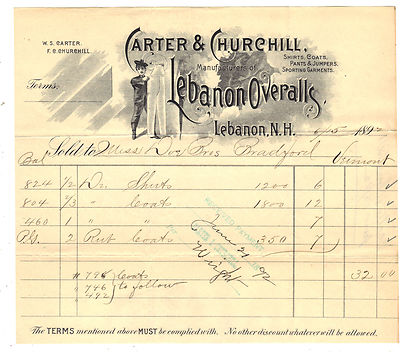 W. S. CARTER.
F. C. CHURCHILL.
CARTER & CHURCHILL,
Manufacturers of
SHIRTS, COATS,
PANTS & JUMPERS,
SPORTING GARMENTS.
Lebanon Overalls,
Terms:
Lebanon, N.H. 1892
Sold to Messrs Doe Bros Bradford Vermont
824 1/2 Dz Shirts 1200 6 ✓
804 2/3 " Coats 1800 12 ✓
460 1 " " 7 ✓
2 Rub Coats 350 7 ✓
# 796 Coats 32.00
" 746 to follow
" 492
June 21 92
Wright
The TERMS mentioned above MUST be complied with. No other discount whatever will be allowed.